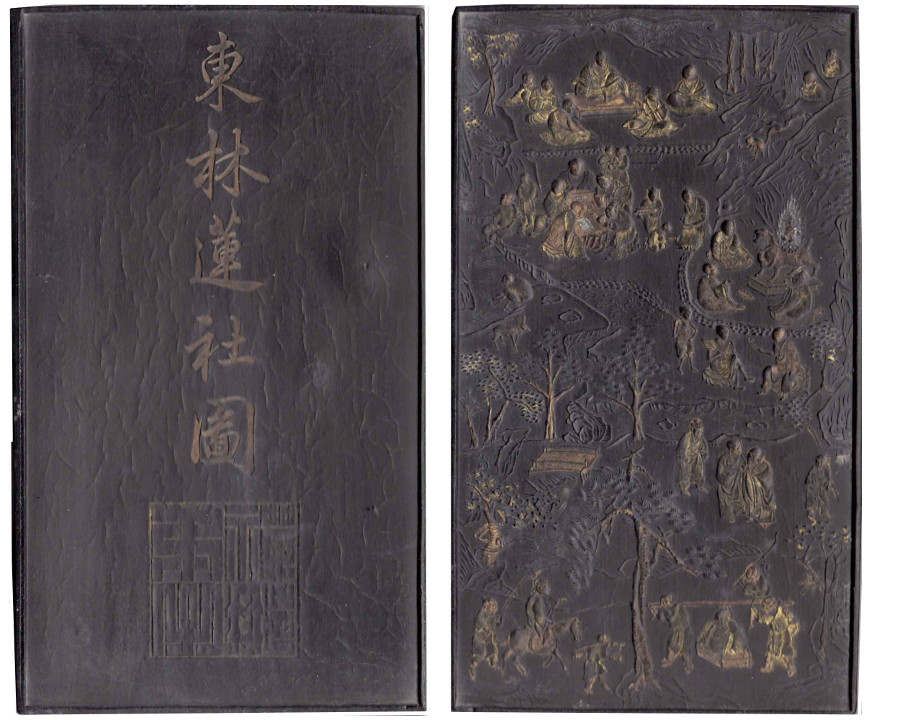 東林蓮社圖